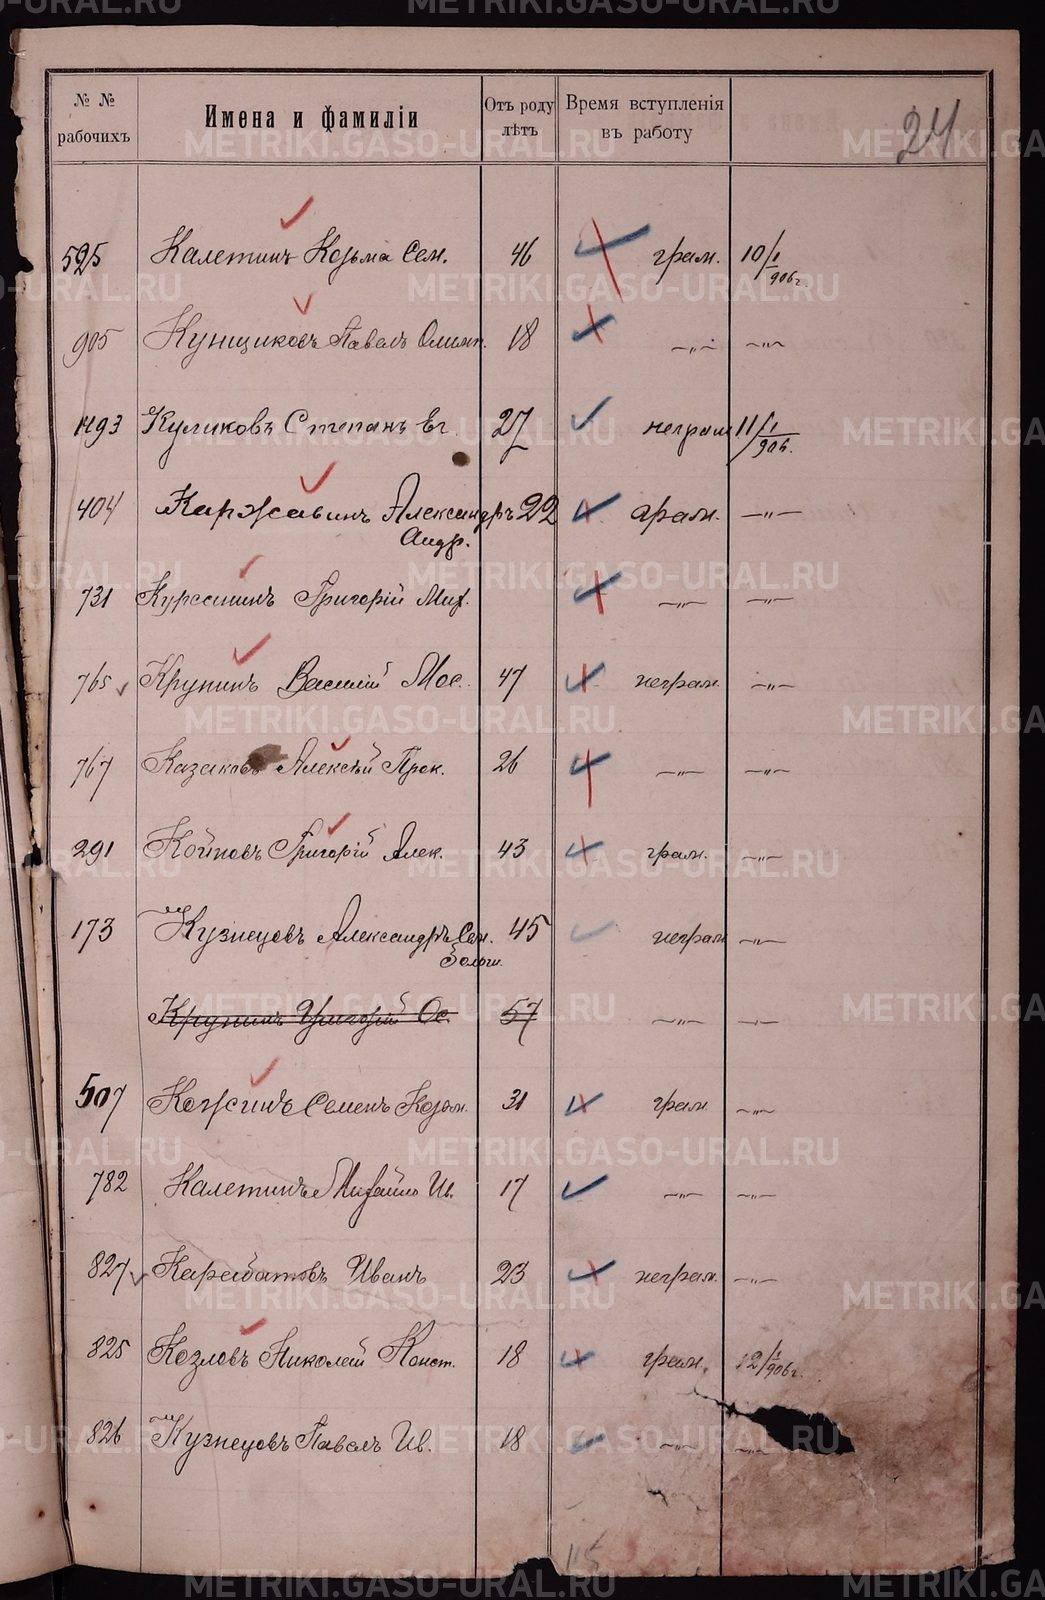 № № рабочихъ Имена и фамиліи Отъ роду лѣтъ Время вступленія въ работу 24
525 Калетинъ Козьма Сем. 46 грам. 10/I 906 г.
905 Кунщиковъ Павелъ 18 —„— —„—
1493 Куликовъ Степанъ Ег. 27 неграм 11/I 906.
404 Каржавинъ Александръ 22 грам. —„—
Андр.
731 Григорій Мих. —„— —„—
765 Крупинъ Василій Мос. 47 неграм. —„—
767 Казаковъ Алексѣй Прок. 26 —„— —„—
291 Койновъ Григорій Алек. 43 грам. —„—
173 Кузнецовъ Александръ Сем. 45 неграм —„—
Больш.
Крупинъ Григорій Ос. 57 —„— —„—
507 Кожинъ Семенъ Козьм. 31 грам. —„—
782 Калетинъ Михайло Ив. 17 —„— —„—
827 Иванъ 23 неграм. —„—
825 Козловъ Николай Конст. 18 грам. 12/I 906 г.
826 Кузнецовъ Павелъ Ив. 18 —„— —„—
115
METRIKI.GASO-URAL.RU